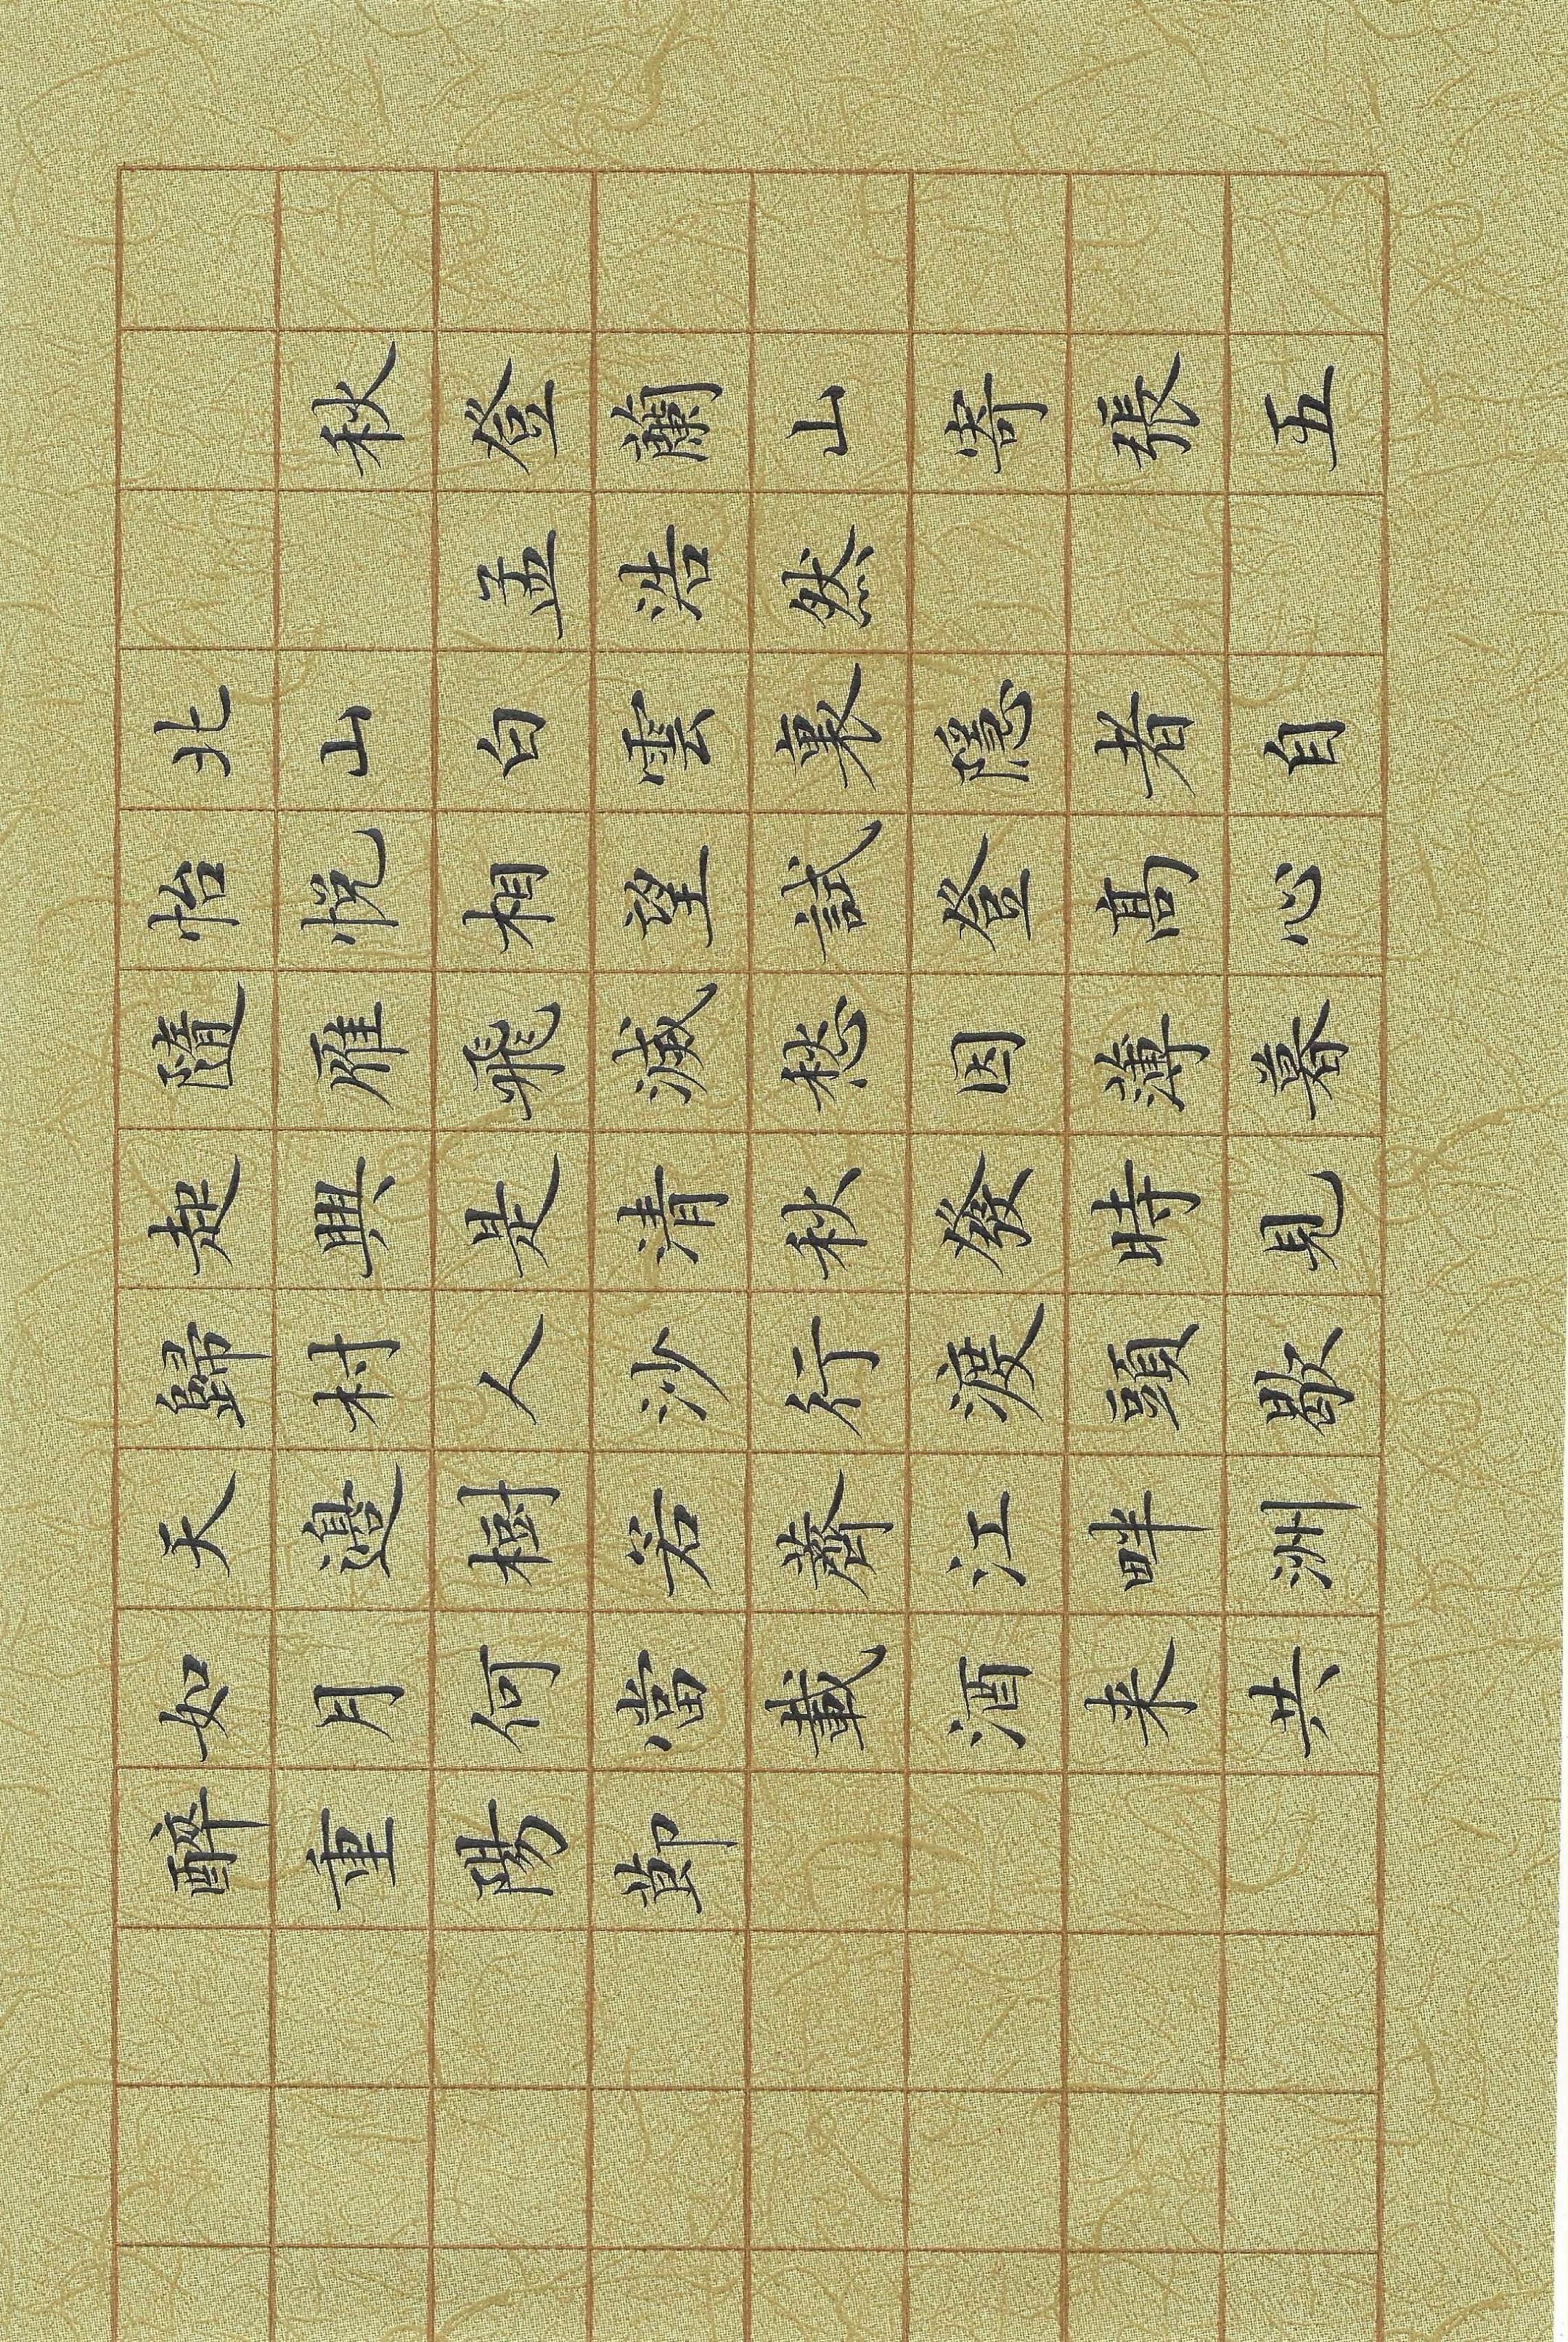 秋登蘭山寄張五
孟浩然
北山白雲裏隱者自
怡悦相望試登髙心
隨雁飛滅愁因薄暮
起興是清秋發時見
歸村人沙行渡頭歇
天邊樹若薺江畔洲
如月何當載酒来共
醉重陽節